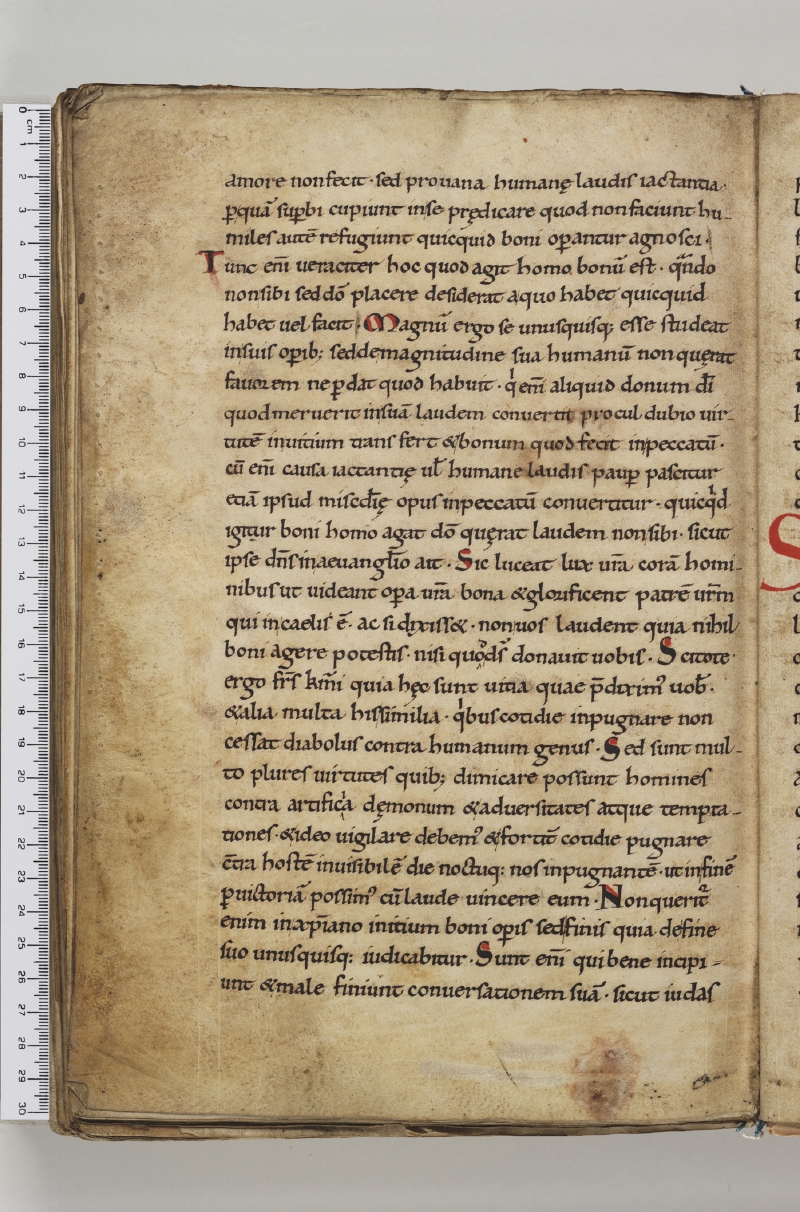 amore non fecit · sed pro uana humanę laudis iactantia ·
ꝑquā suꝑbi cupiunt in se prędicare quod non faciunt hu-
miles autē refugiunt quicquid boni oꝑantur agnosci ·
Tunc eni̅ ueraciter hoc quod agit homo bonū est · qn̅do
non sibi sed dō placere desiderat a quo habet quicquid
habet uel facit · Magnū ergo se unusquisq; esse studeat
in suis oꝑib; sed de magnitudine sua humanū non quęrat
fauorem ne ꝑdat quod habuit · qͥ eni̅ aliquid donum di̅
quod meruerit in suā laudem conuertit procul dubio uir-
tutē in uitium transfert & bonum quod fecit in peccatū ·
cū eni̅ causa iactantię ul̅ humane laudis pauꝑ pascitur
etiā ipsud misc̅dię opus in peccatū conuertitur · quicqͥd
igitur boni homo agat dō quęrat laudem non sibi · sicut
ipse dn̅s in aeuanglīo ait · Sic luceat lux ur̅a corā homi-
nibus ut uideant oꝑa ur̅a bona & glorificent patrē ur̅m
qui in caelis ē · ac si dixiss& · non uos laudent quia nihil
boni agere potestis · nisi quod d̅s donauit uobis · Scitote
ergo fr̅s km̅i quia hęc sunt uitia quae p̅diximꝰ uob̅ ·
& alia multa his similia · qͥbus cotidie inpugnare non
cessat diabolus contra humanum genus · Sed sunt mul-
to plures uirtutes quib; dimicare possunt homines
contra artificia dęmonum & aduersitates atque tempta-
tiones · & ideo uigilare debemꝰ & fortit̅ cotidie pugnare
c̅tra hostē inuisibilē die noctuq; nos inpugnantē · ut in finē
ꝑ uictoriā possimꝰ cū laude uincere eum · Non querit̅
enim in xp̅iano initium boni oꝑis sed finis quia de fine
suo unusquisq; iudicabitur · Sunt eni̅ qui bene incipi-
unt & male finiunt conuersationem suā · sicut iudas